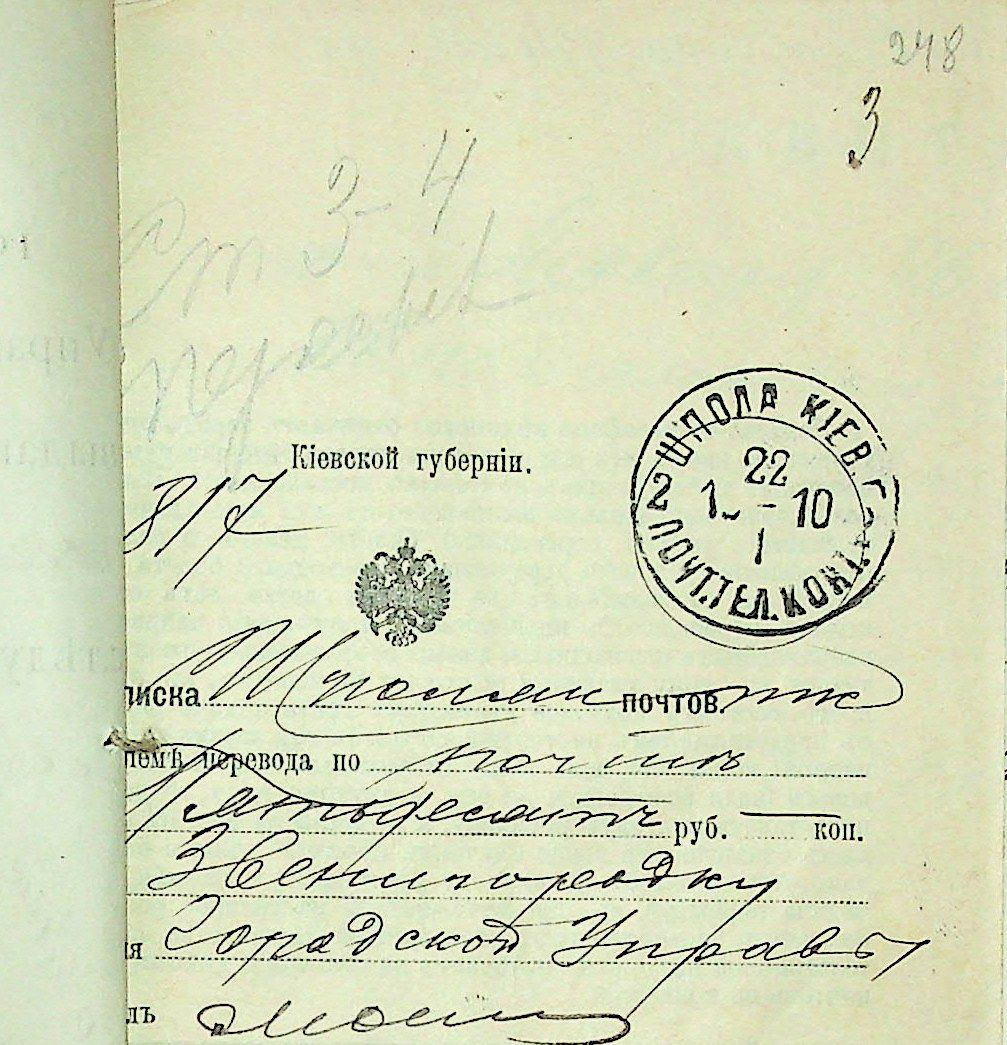 248
3
От 3-4
Кіевской губерніи.
817
ШПОЛА КІЕВ. Г.
22
1 - 10
1
2 ПОЧТ.ТЕЛ.КОН.
писка почтов.
ріемѣ перевода по почтѣ
Пятьдесятъ руб. — коп.
Звенигородку
я Городской Управы
лъ